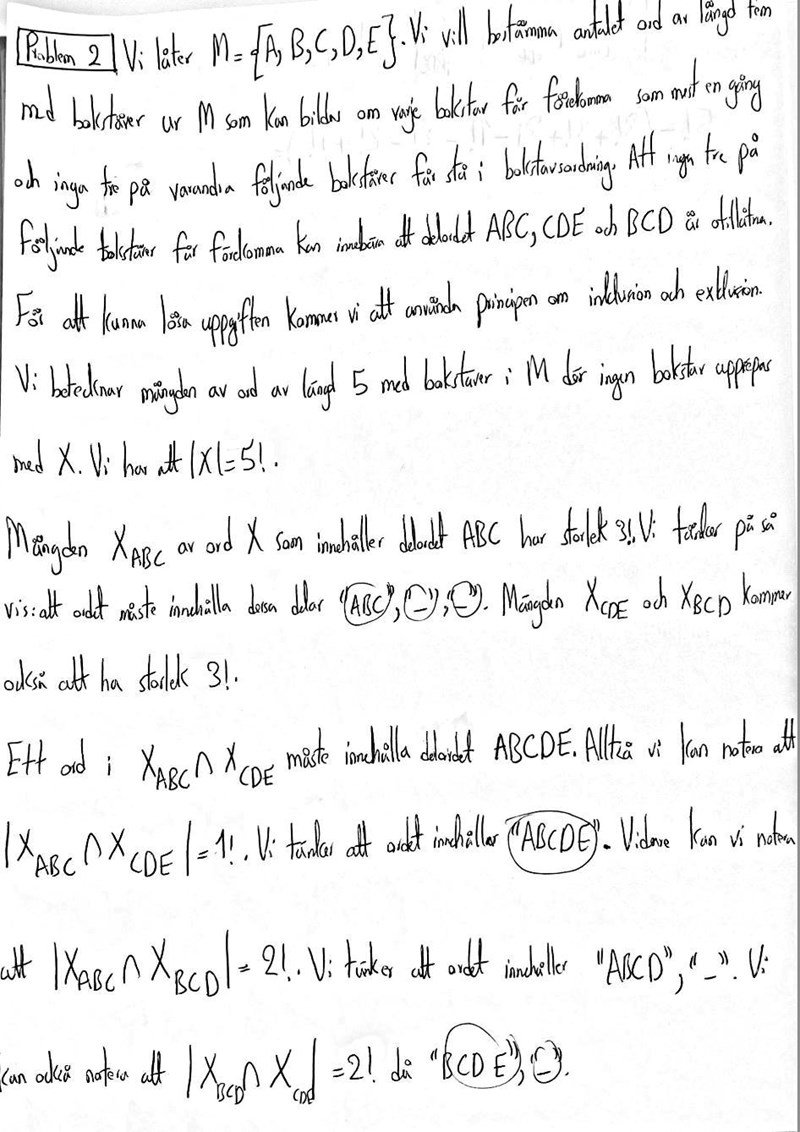 Problem 2 Vi låter M={A, B, C, D, E}. Vi vill bestämma antalet ord av längd fem
med bokstäver ur M som kan bildas om varje bokstav får förekomma som mest en gång
och inga tre på varandra följande bokstäver får stå i bokstavsordning. Att inga tre på
följande bokstäver får förekomma kan innebära att delordet ABC, CDE och BCD är otillåtna.
För att kunna lösa uppgiften kommer vi att använda principen om inklusion och exklusion.
Vi betecknar mängden av ord av längd 5 med bokstäver i M där ingen bokstav upprepas
med X. Vi har att |X|=5!.
Mängden X_ABC av ord X som innehåller delordet ABC har storlek 3!. Vi tänker på så
vis: att ordet måste innehålla dessa delar "ABC", "_", "_". Mängden X_CDE och X_BCD kommer
också att ha storlek 3!.
Ett ord i X_ABC ∩ X_CDE måste innehålla delordet ABCDE. Alltså vi kan notera att
|X_ABC ∩ X_CDE| = 1!. Vi tänker att ordet innehåller "ABCDE". Vidare kan vi notera
att |X_ABC ∩ X_BCD| = 2!. Vi tänker att ordet innehåller "ABCD", "_". Vi
kan också notera att |X_BCD ∩ X_CDE| = 2! då "BCDE", "_".